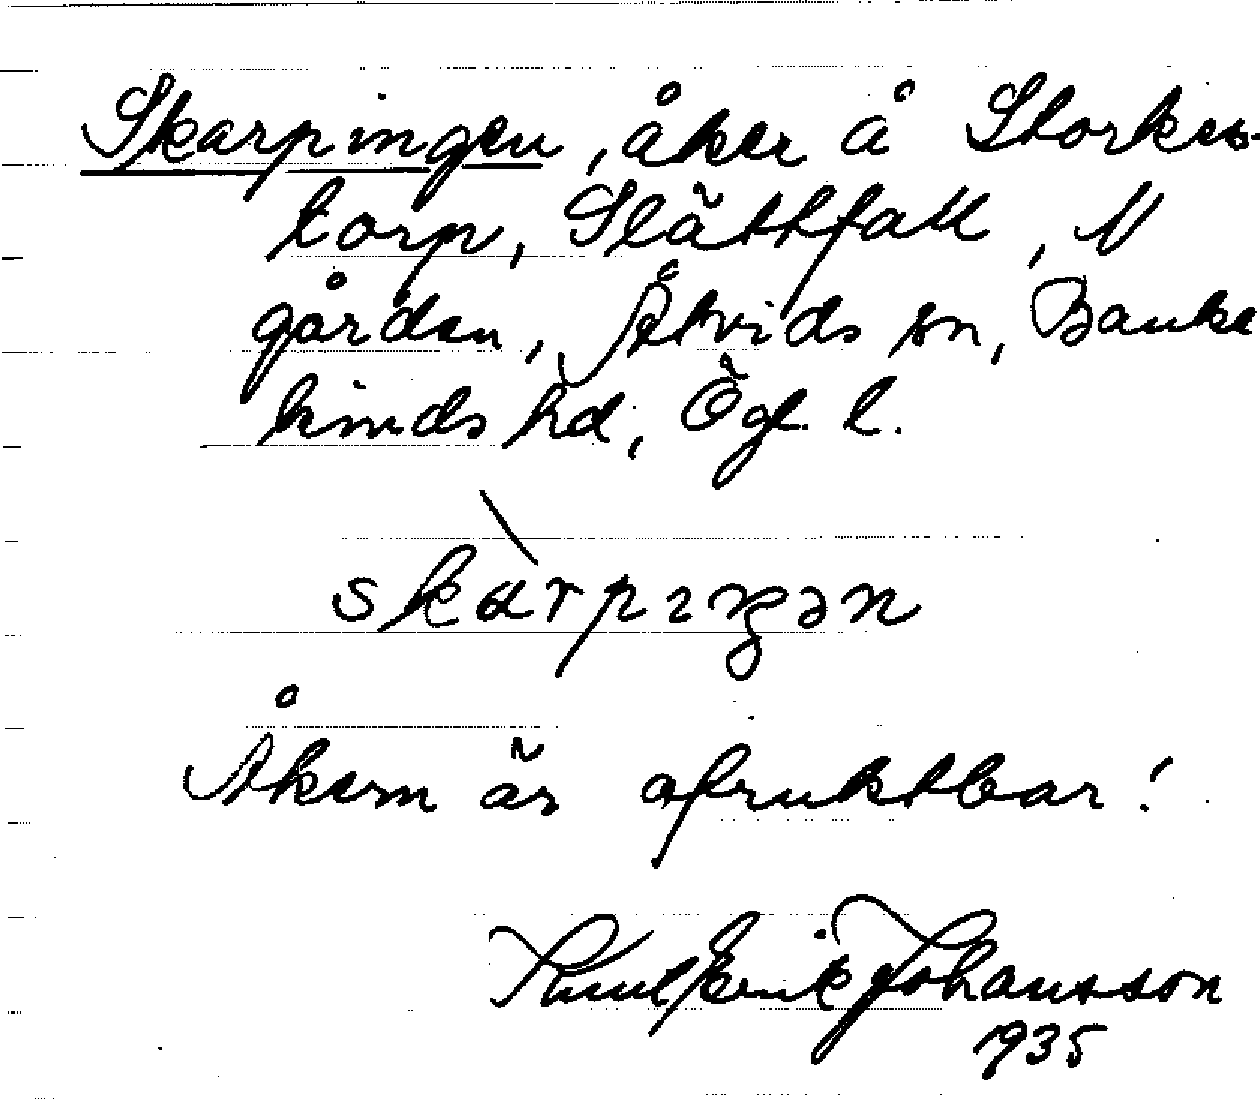 Skarpingen, åker å Storkes-
torp, Slätthfall, N
gården, Åtvids sn, Banke
kinds hd, Ögl. l.
skàrpıŋən
Åkern är ofruktbar!
Knut Erik Johansson
1935